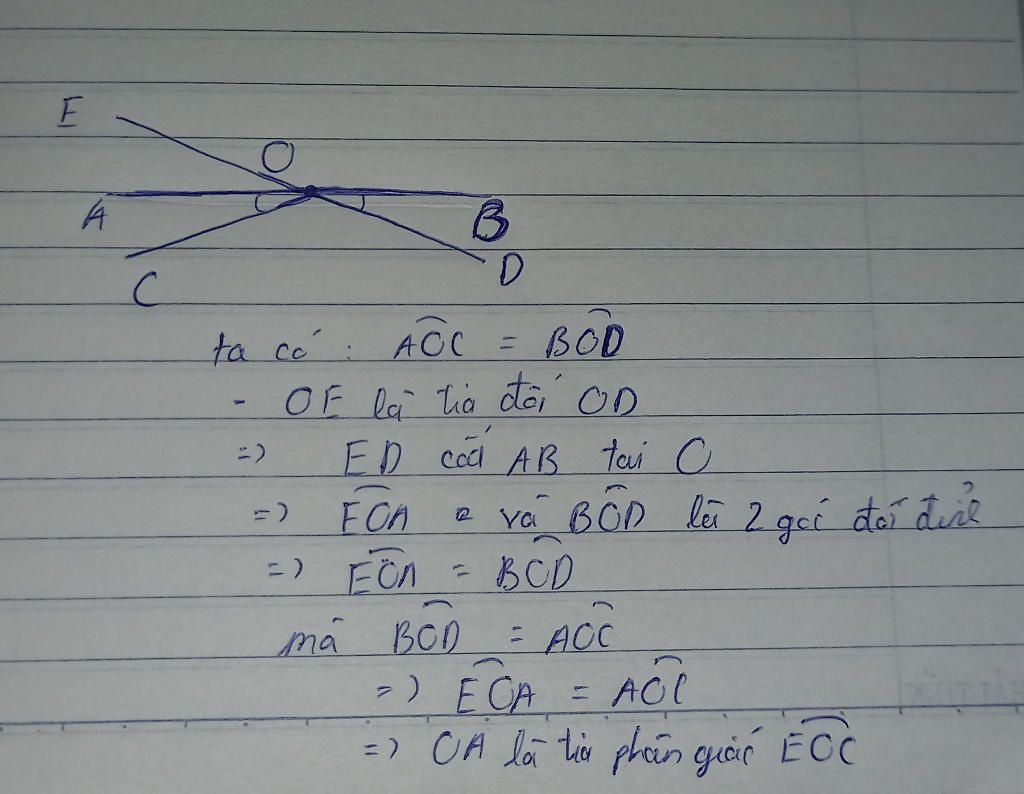 E
O
A
B
C
D
ta có : AOC = BOD
- OE là tia đối OD
=> ED cắt AB tại O
=> EOA và BOD là 2 góc đối đỉnh
=> EOA = BOD
mà BOD = AOC
=> EOA = AOC
=> OA là tia phân giác EOC